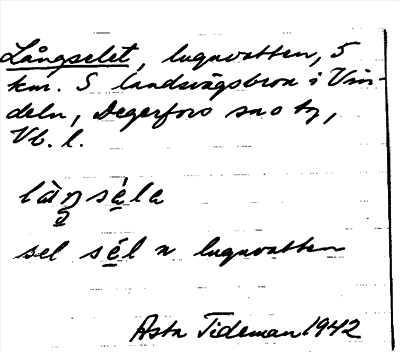 Långselet, lugnvatten, 5
km. S landsvägsbron i Vin-
deln, Degerfors sn o tg,
Vb. l.
làŋséla
sel sél n lugnvatten
Asta Tideman 1942